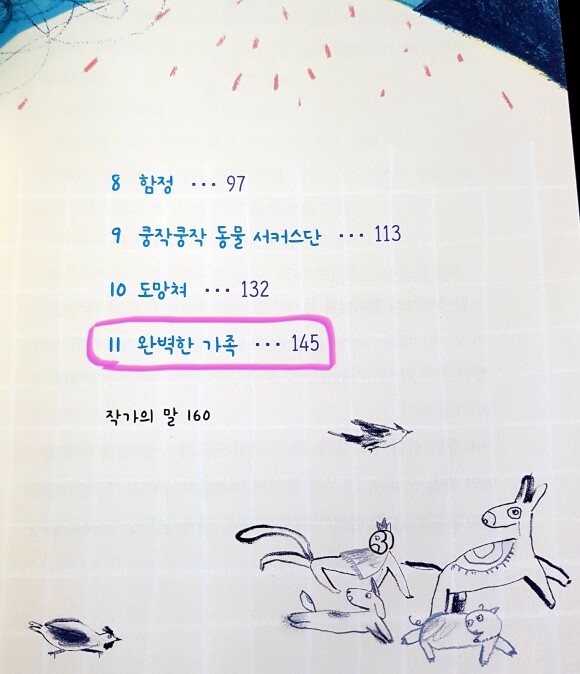 8 함정 ··· 97
9 쿵작쿵작 동물 서커스단 ··· 113
10 도망쳐 ··· 132
11 완벽한 가족 ··· 145
작가의 말 160